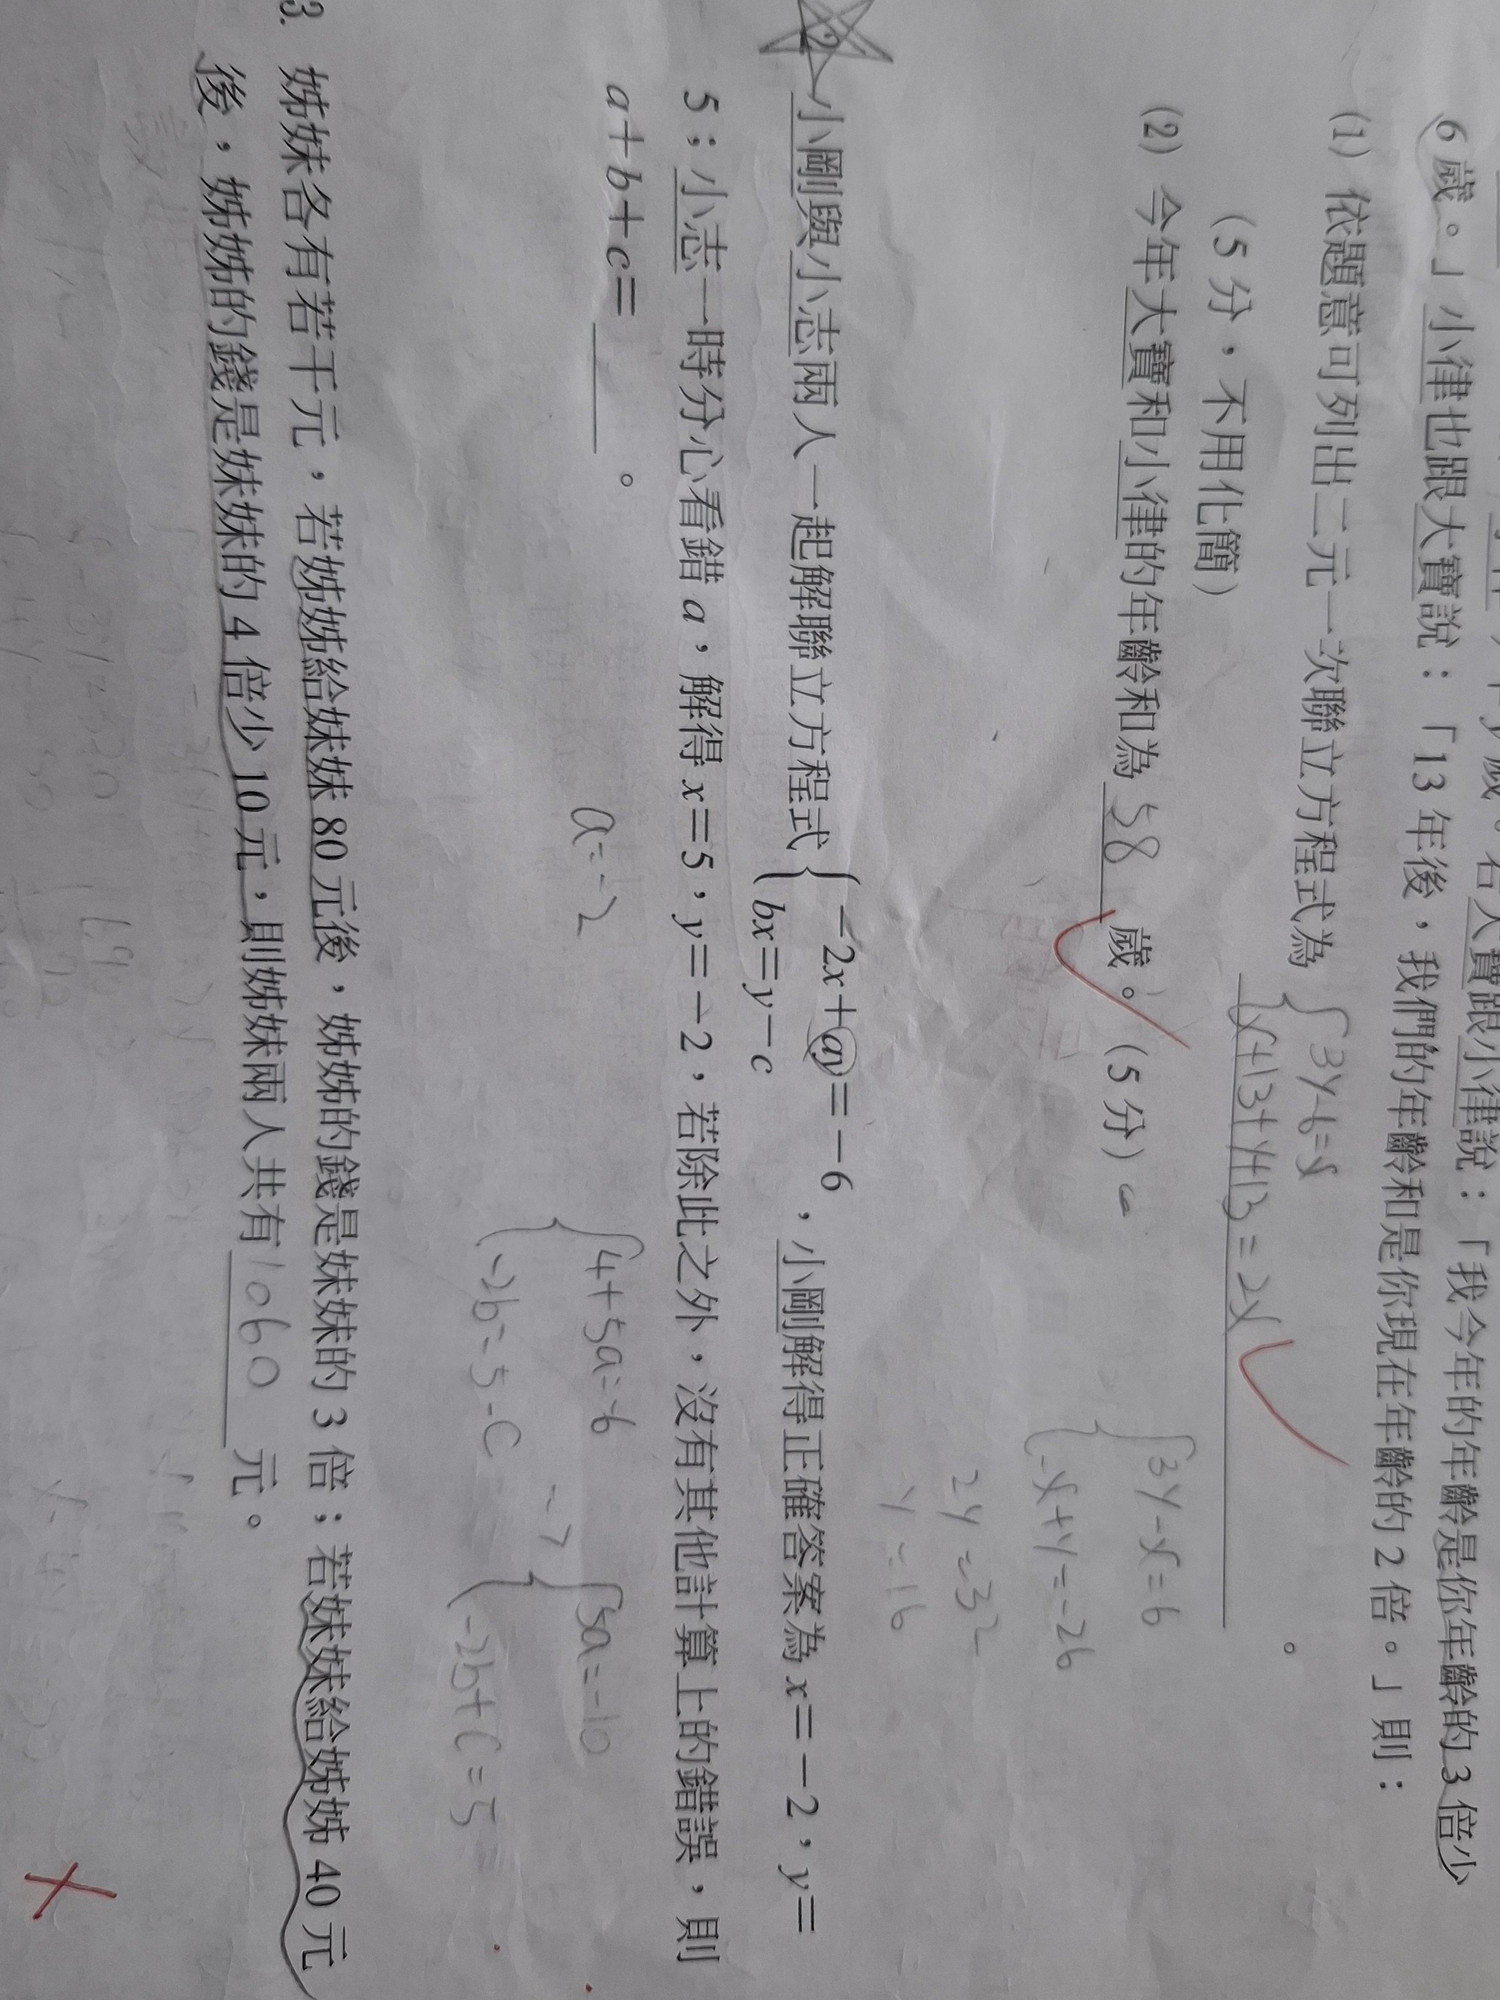 6歲。」小律也跟大寶說:「13年後,我們的年齡和是你現在年齡的2倍。」則:
(1) 依題意可列出二元一次聯立方程式為 { 3y-6=x
x+13+y+13=2x 。
(5分,不用化簡)
(2) 今年大寶和小律的年齡和為 58 歲。(5分)
3y-x=6
-x+y=-26
2y=32
y=16
2. 小剛與小志兩人一起解聯立方程式 { -2x+ay=-6
bx=y-c ,小剛解得正確答案為 x=-2,y=
5;小志一時分心看錯 a,解得 x=5,y=-2,若除此之外,沒有其他計算上的錯誤,則
a+b+c= 。
a=-2
4+5a=-6
-2b=5-c
5a=-10
-2b+c=5
3. 姊妹各有若干元,若姊姊給妹妹 80 元後,姊姊的錢是妹妹的 3 倍;若妹妹給姊姊 40 元
後,姊姊的錢是妹妹的 4 倍少 10 元,則姊妹兩人共有 1060 元。